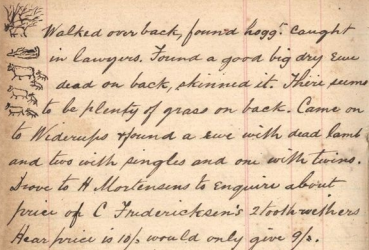 Walked over back, found hoggt caught
in lawyers. Found a good big dry Ewe
dead on back, skinned it. There seems
to be plenty of grass on back. Came on
to Wederups & found a Ewe with dead lamb
and two with singles and one with twins.
Drove to H Mortensens to Enquire about
price of C Fredericksen's 2tooth wethers
Hear price is 10/- would only give 9/-.